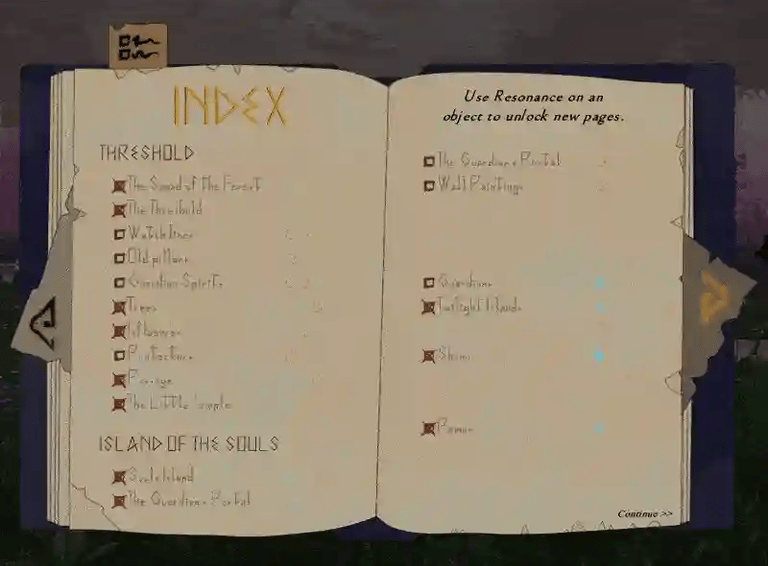 INDEX
THRESHOLD
The Sword of the Forest
The Threshold
Watchtower
Old pillars
Guardian Spirits
Trees
Passage
The Little Temple
ISLAND OF THE SOULS
Souls Island
The Guardians Portal
Use Resonance on an
object to unlock new pages.
The Guardians Portal
Wall Paintings
Guardians
Twilight Islands
Continue >>